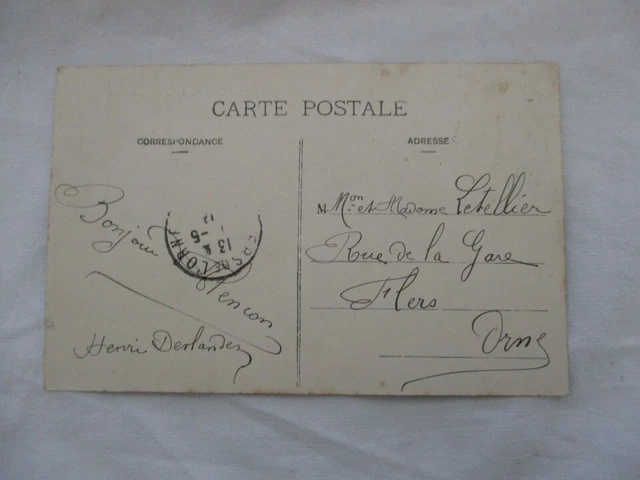 CARTE POSTALE
CORRESPONDANCE
Bonjour
Henri Deslandes
ADRESSE
M Mon et Madame Letellier
Rue de la Gare
Flers
Orne
FLERS DE L'ORNE
13
-5
12